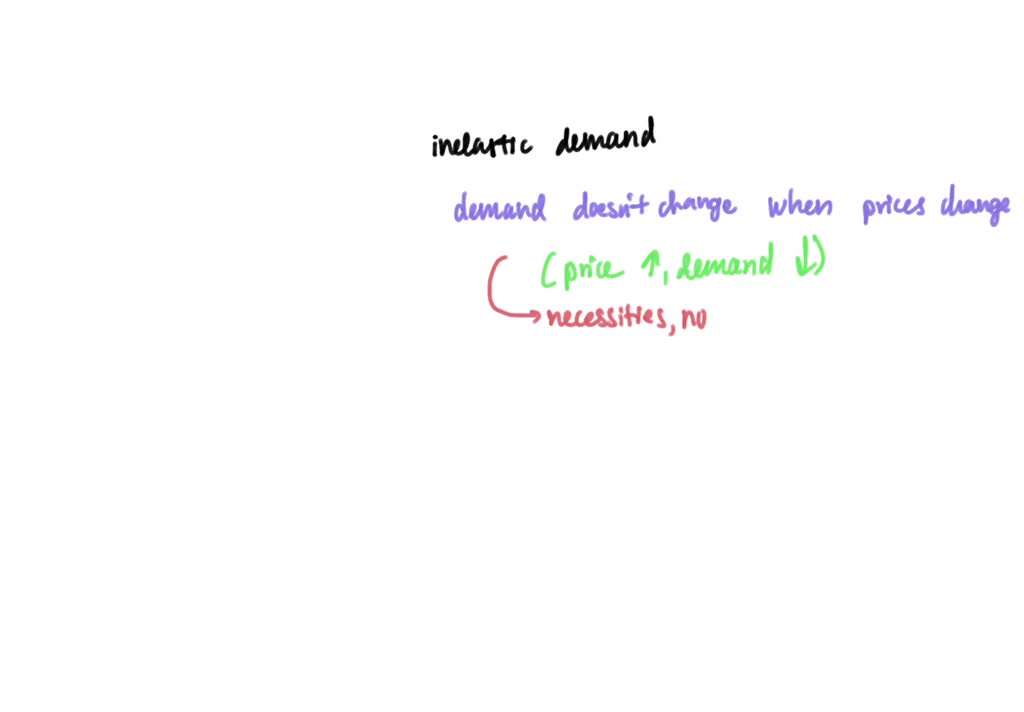 inelastic demand
demand doesn't change when prices change
(price ↑, demand ↓)
necessities, no